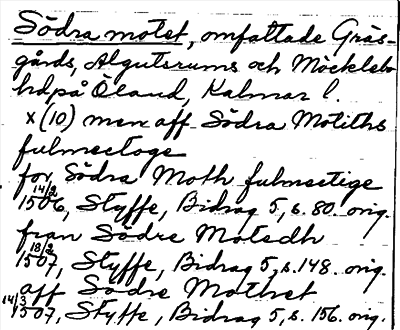 Södra motet, omfattade Gräs-
gårds, Algutsrums och Möckleby
hd, på Öland, Kalmar l.
x (10) men aff Södra Motiths
fulmectoge
for Södra Moth fulmectige
14/2 1506, Styffe, Bidrag 5, s. 80. orig.
från Södre Motsdh
18/2 1507, Styffe, Bidrag 5, s. 148. orig.
aff Södre Mothet
14/3 1507, Styffe, Bidrag 5, s. 156. orig.